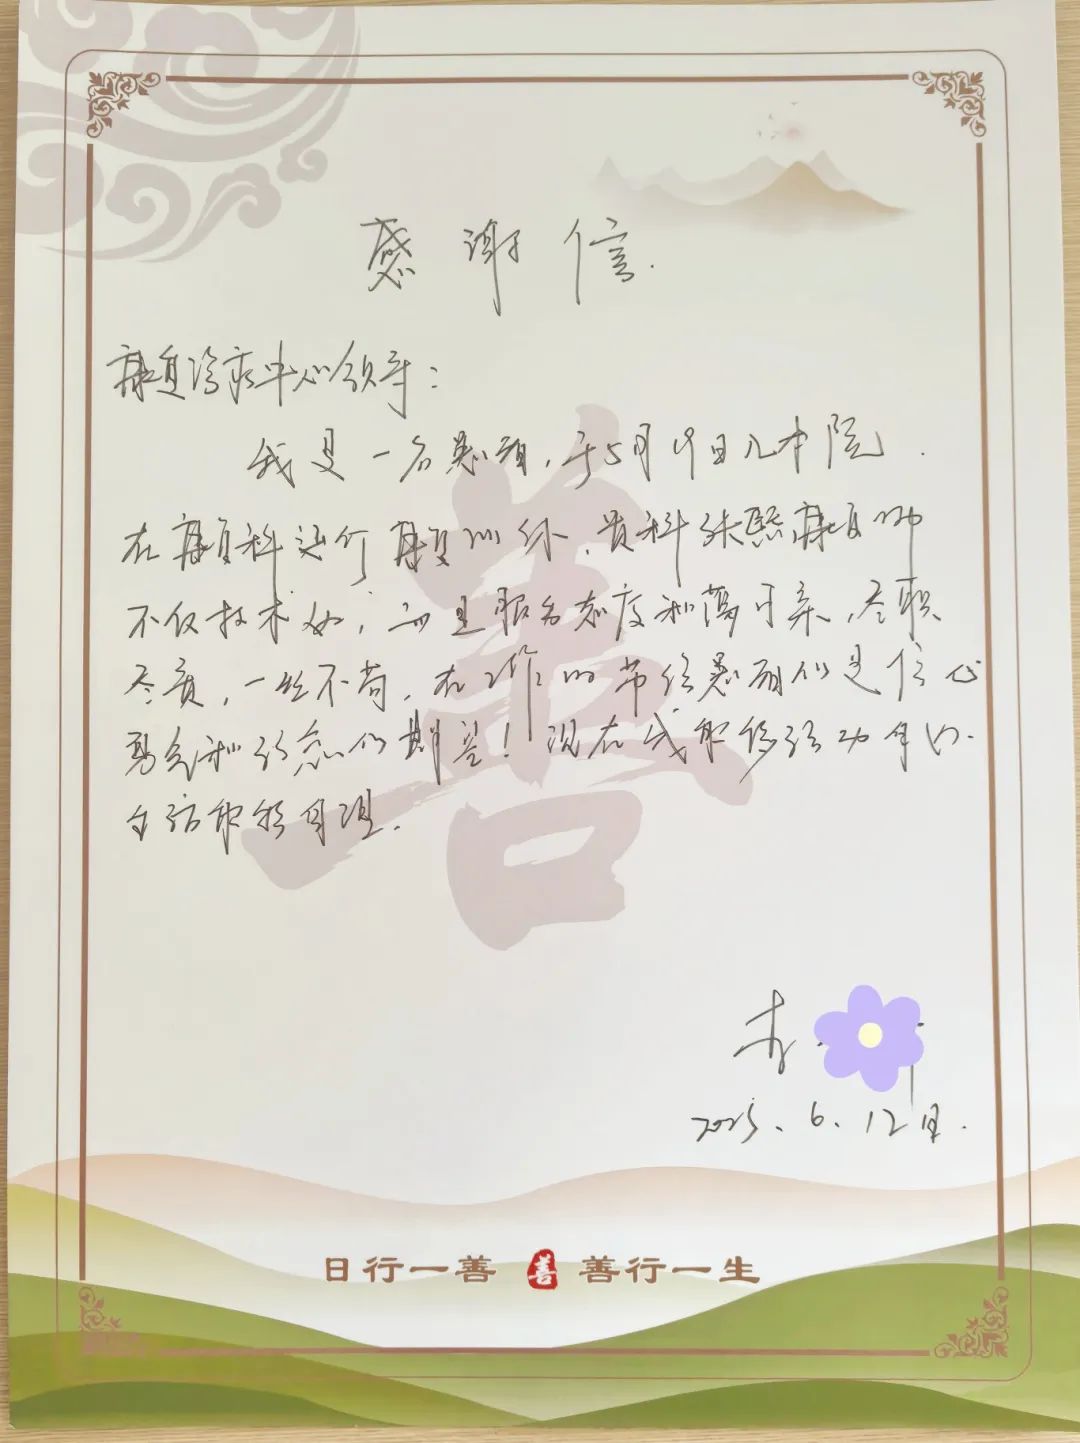 感谢信.
康复治疗中心领导：
我是一名患者，于5月19日入本院.
在康复科进行康复训练，贵科张熙康复师
不仅技术好，而且服务态度和蔼可亲，尽职
尽责，一丝不苟，在工作的给患者们是信心
勇气和的期望！现在我取得
生活能够自理.
李
2025.6.12日.
日行一善 善 善行一生
善